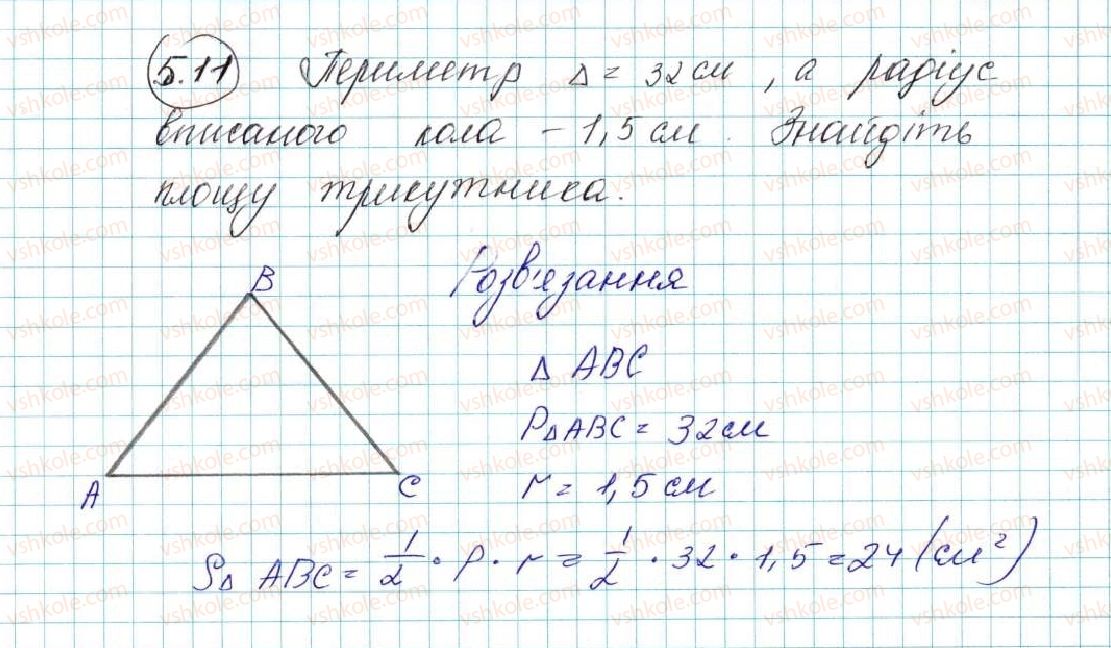 5.11 Периметр Δ = 32 см, а радіус
вписаного кола – 1,5 см. Знайдіть
площу трикутника.
Розв'язання
B
Δ ABC
PΔABC = 32 см
A
C
r = 1,5 см
SΔ ABC = 1/2 · P · r = 1/2 · 32 · 1,5 = 24 (см²)
vshkole.com